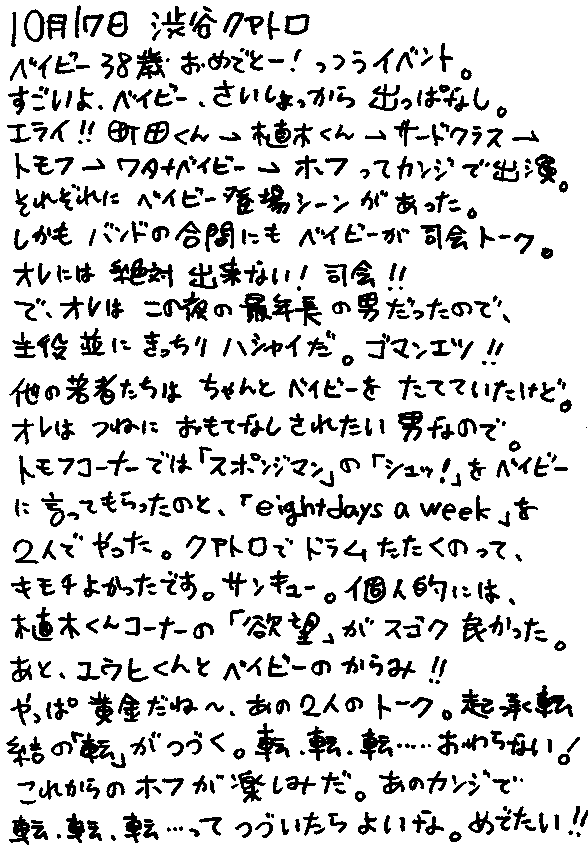 10月17日 渋谷クアトロ
ベイビー38歳 おめでとー！っつうイベント。
すごいよ、ベイビー、さいしょっから 出っぱなし。
エライ!! 町田くん→植木くん→サードクラス→
トモフ→ワタ+ベイビー→ホフ ってカンジで出演。
それぞれに ベイビー登場シーン があった。
しかも バンドの合間にも ベイビーが 司会トーク。
オレには 絶対 出来ない！司会!!
で、オレは この夜の 最年長の男だったので、
主役並に きっちり ハシャイだ。ゴマンエツ!!
他の若者たちは ちゃんと ベイビーを たてていたけど。
オレは つねに おもてなしされたい 男なので。
トモフコーナーでは「スポンジマン」の「シュッ！」を ベイビー
に 言ってもらったのと、「eight days a week」を
2人で やった。クアトロで ドラム たたくのって、
キモチよかったです。サンキュー。個人的には、
植木くんコーナーの「欲望」が スゴク 良かった。
あと、ユウヒくんと ベイビーの からみ!!
やっぱ 黄金だね〜、あの2人のトーク。起承転
結の「転」が つづく。転、転、転……おわらない！
これからの ホフが 楽しみだ。あのカンジで
転、転、転…って つづいたら よいな。めでたい!!